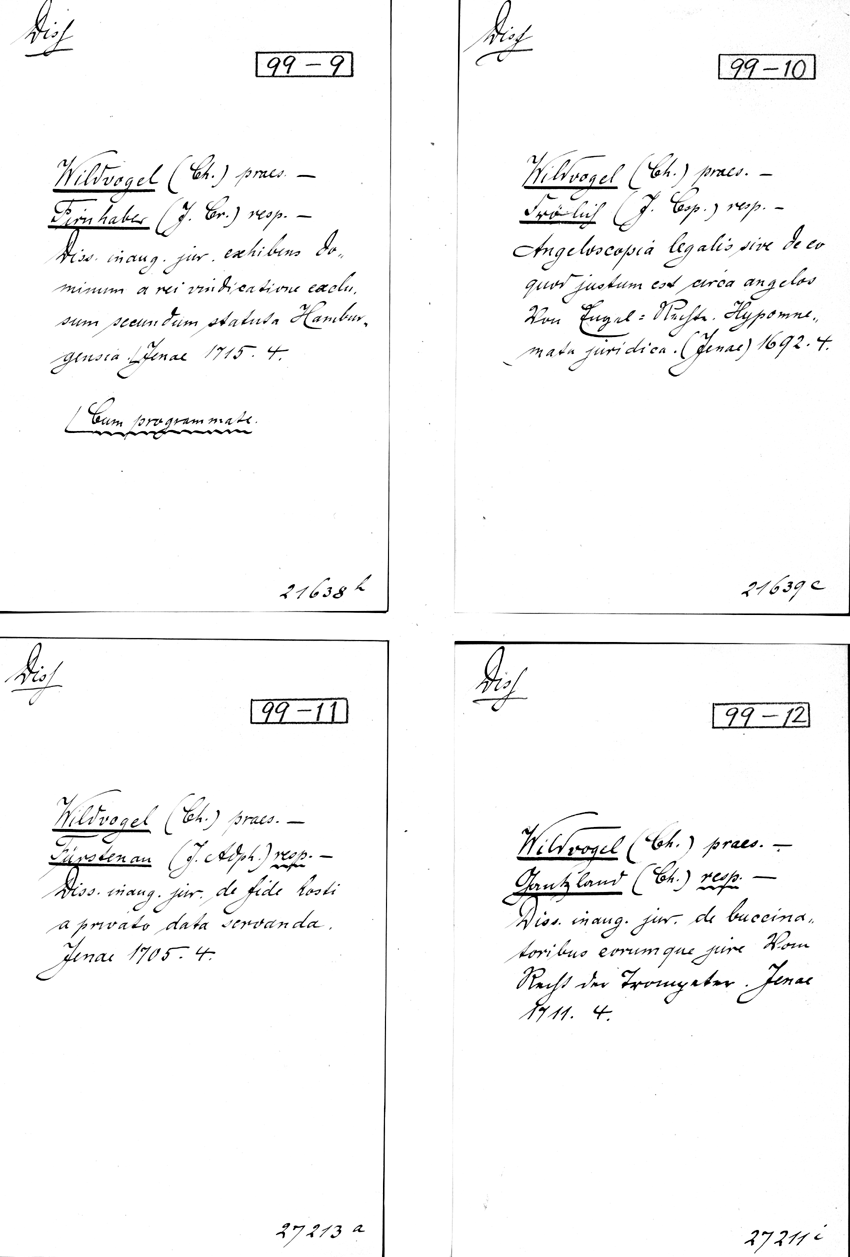 Diss
99-9
Wildvogel (Ch.) praes. —
Firnhaber (J. Cr.) resp. —
Diss. inaug. jur. exhibens do-
minum a rei vindicatione exclu-
sum secundum statuta Hambur-
gensia. Jenae 1715. 4.
Cum programmate.
21638 h
Diss
99-10
Wildvogel (Ch.) praes. —
Frölich (J. Csp.) resp. —
Angeloscopia legalis sive de eo
quod justum est circa angelos
Von Engel-Recht. Hypomne-
mata juridica. (Jenae) 1692. 4.
21639 c
Diss
99-11
Wildvogel (Ch.) praes. —
Fürstenau (J. Adph.) resp. —
Diss. inaug. jur. de fide hosti
a privato data servanda.
Jenae 1705. 4.
27213 a
Diss
99-12
Wildvogel (Ch.) praes. —
Gantzland (Ch.) resp. —
Diss. inaug. jur. de buccina-
toribus eorumque jure Vom
Recht der Trompeter. Jenae
1711. 4.
27211 i